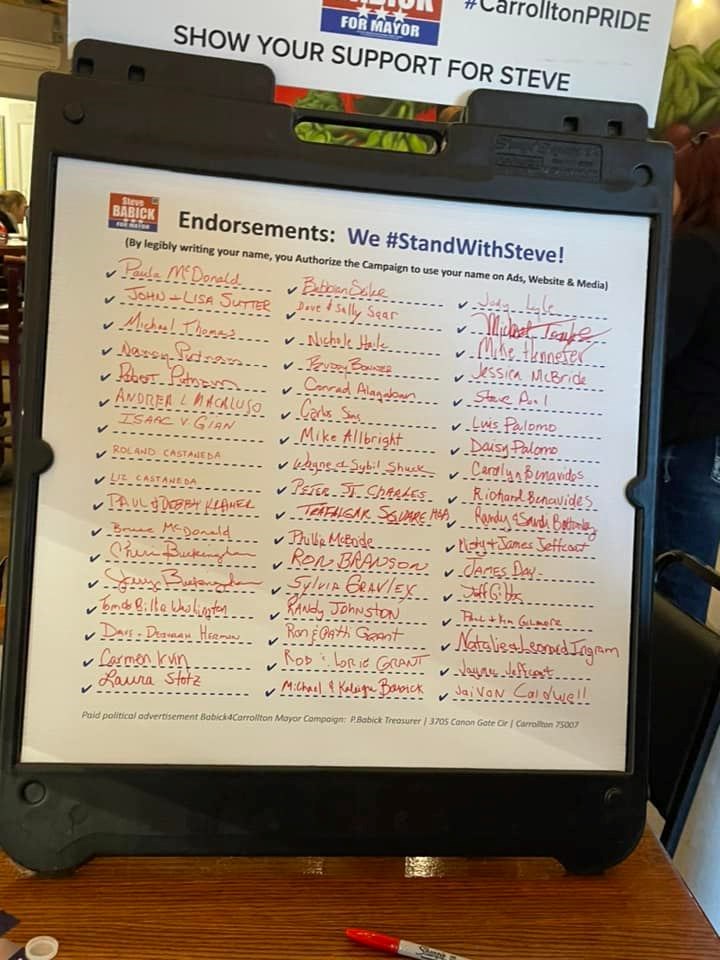 FOR MAYOR
#CarrolltonPRIDE
SHOW YOUR SUPPORT FOR STEVE
Steve
BABICK
FOR MAYOR
Endorsements: We #StandWithSteve!
(By legibly writing your name, you Authorize the Campaign to use your name on Ads, Website & Media)
Paula McDonald
JOHN + LISA SUTTER
Michael Thomas
Nancy Putnam
Robert Putnam
ANDREA L MACALUSO
ISAAC V. GIAN
ROLAND CASTANEDA
LIZ CASTANEDA
PAUL & DEBBY KRAMER
Bruce McDonald
Cheri Buckingham
Jerry Buckingham
Tom & Billie Washington
Dave - Deborah Herman
Carmen Irvin
Laura Stotz
Dave & Sally Sear
Nichole Haile
Conrad Alagaban
Carlos
Mike Allbright
Wayne & Sybil Shuck
PETER ST. CHARLES
TRAFALGAR SQUARE HOA
Phillip McBride
RON BRANSON
SYLVIA BRAVLEY
RANDY JOHNSTON
Ron & Cathi Grant
ROB & LORIE GRANT
Michael & Babick
Jody Lyle
Mike Hennefer
Jessica McBride
Steve
Luis Palomo
Daisy Palomo
Carolyn Benavidos
Richard Benavides
Randy & Sandi
+ James Jeffcoat
JAMES DAY
Jeff Gibbs
Paul + Kim Gilmore
Natalie & Leonard Ingram
Jayne Jeffcoat
Jaivon Caldwell
Paid political advertisement Babick4Carrollton Mayor Campaign: P.Babick Treasurer | 3705 Canon Gate Cir | Carrollton 75007
Sharpie